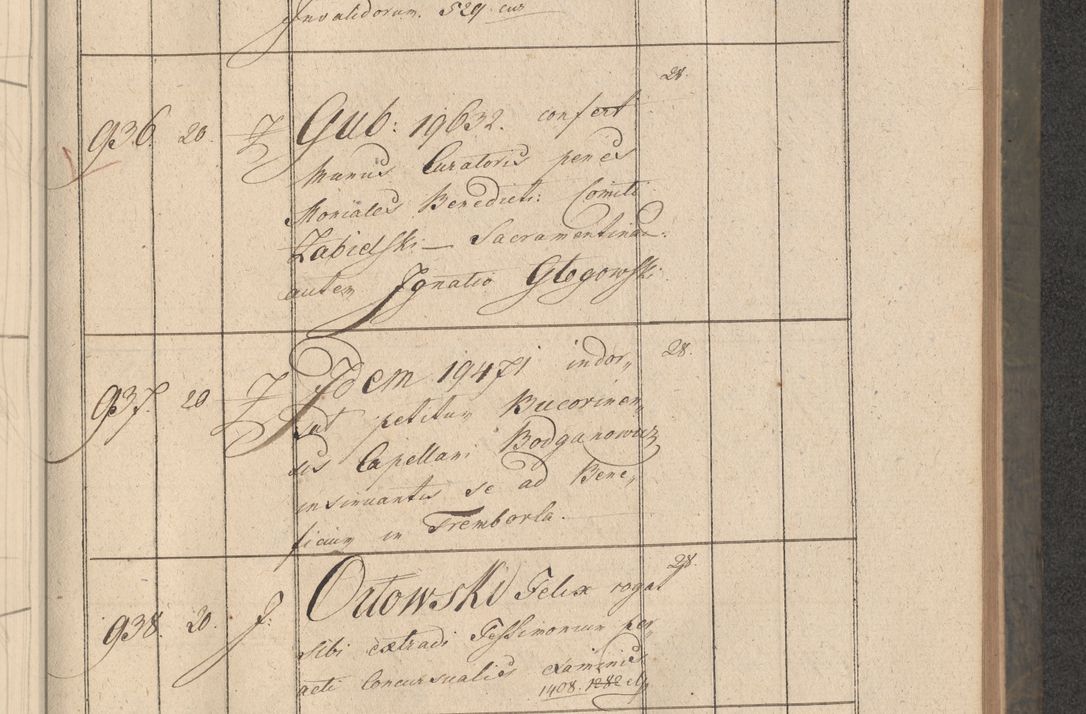 Invalidorum. 529. cur
28.
936. 20. Z Gub: 19632. confert
Manus Curatoris penes
Moniales Benedicti: Comiti
Zabielski — Sacramentinar:
autem Ignatio Głogowski.
28.
937. 20 Z Idem 19471 indor„
sat petitum Bucovinen„
sis Capellani Bodganowicz
insinuantis se ad Bene„
ficium in Trembovla.
28.
938. 20. J. Orłowski Felix rogat
sibi extradi Testimonium per„
acti Concursualis Examinis
1408. 1282